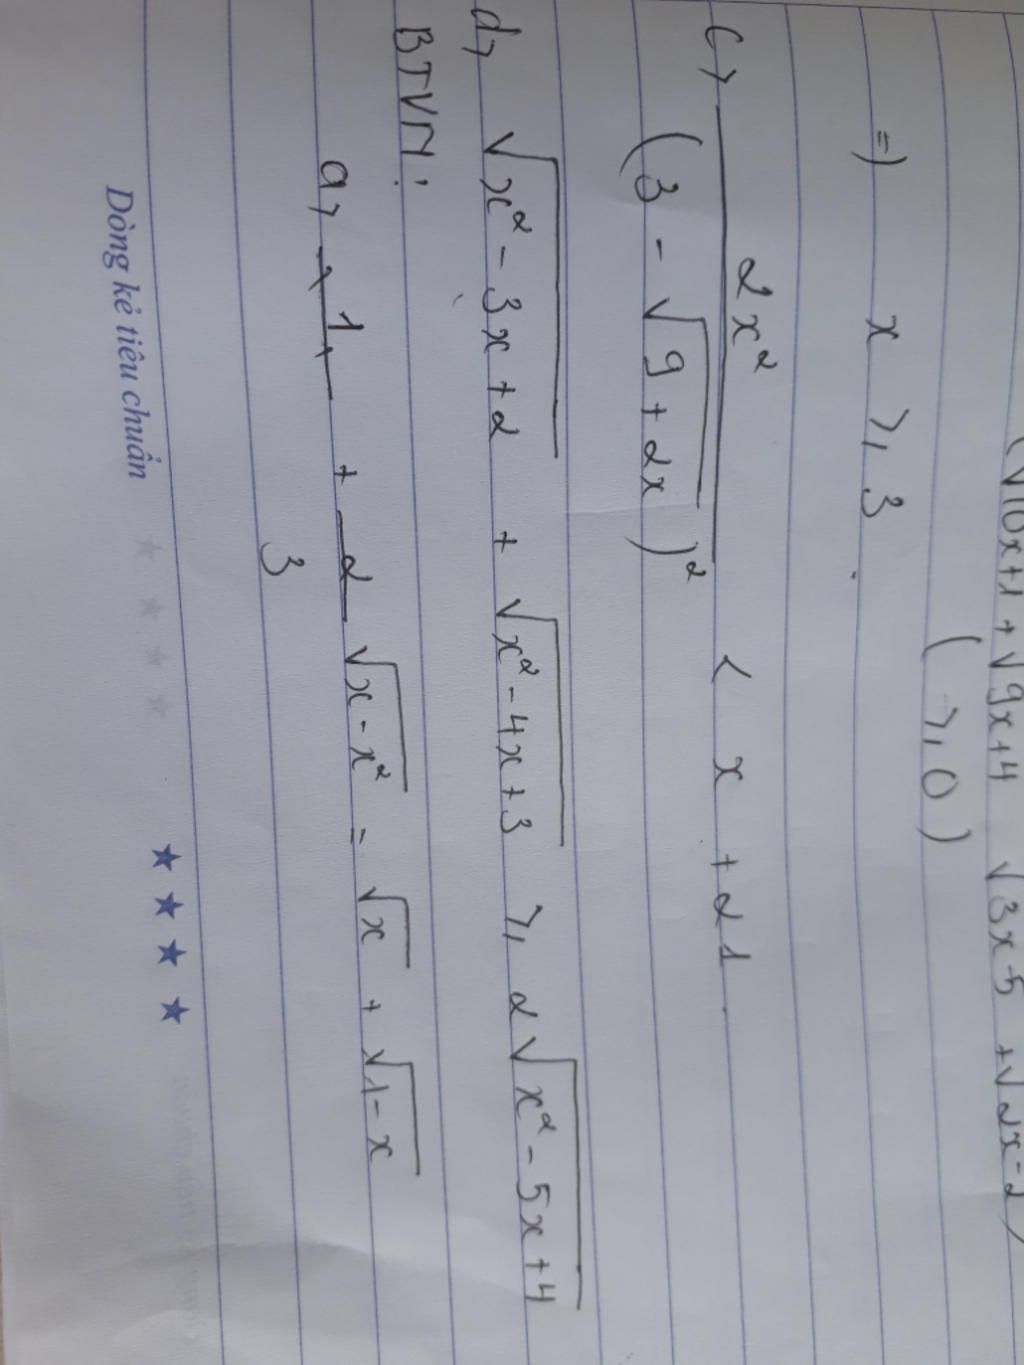 (√10x+1 + √9x+4 √3x-5 + √2x-2)
( ⩾ 0 )
=) x ⩾ 3
c> 2x² / (3 - √9+2x)² < x + 21
d> √x²-3x+2 + √x²-4x+3 ⩾ 2√x²-5x+4
BTVN:
a> 1 + 2/3 √x-x² = √x + √1-x
Dòng kẻ tiêu chuẩn